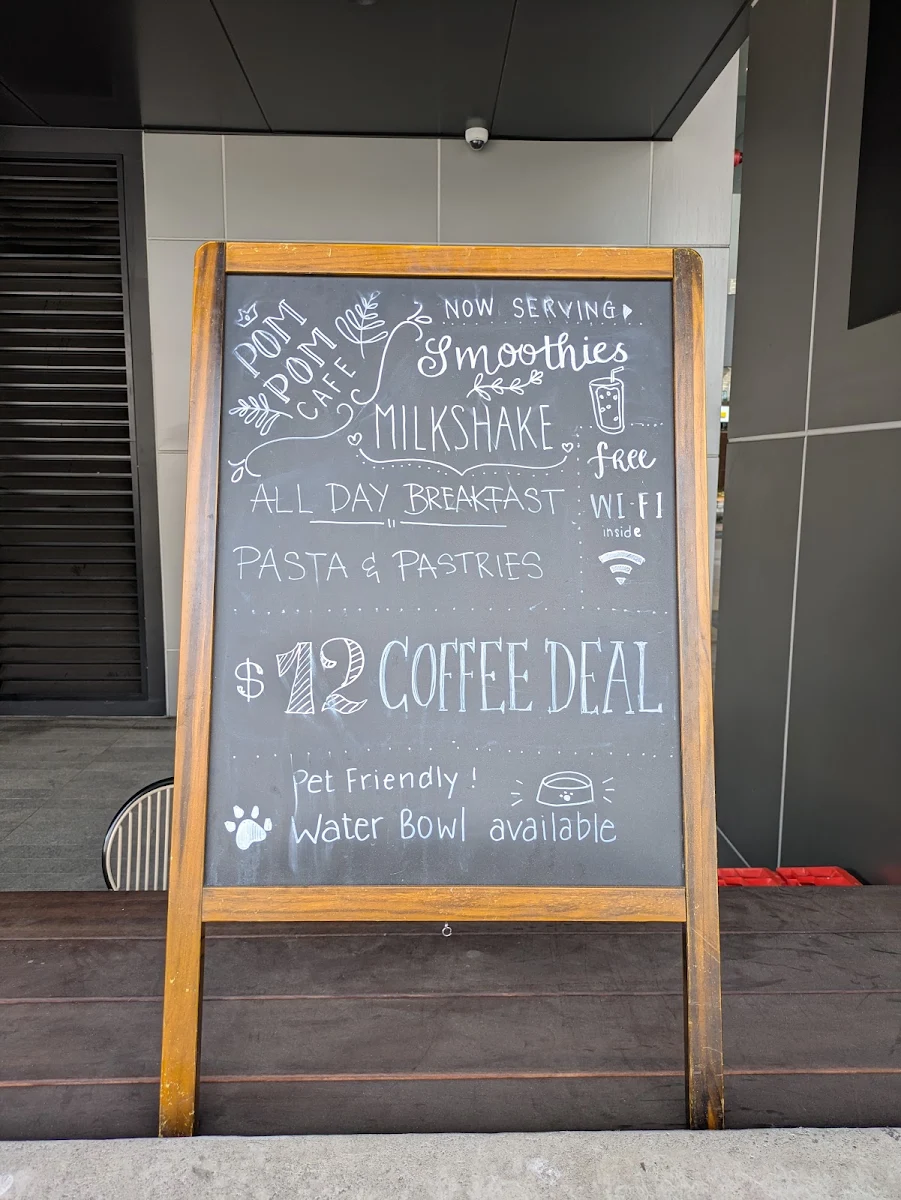 POM
POM
CAFE
NOW SERVING
Smoothies
MILKSHAKE
free
WI-FI
inside
ALL DAY BREAKFAST
PASTA & PASTRIES
$12 COFFEE DEAL
Pet Friendly!
Water Bowl available